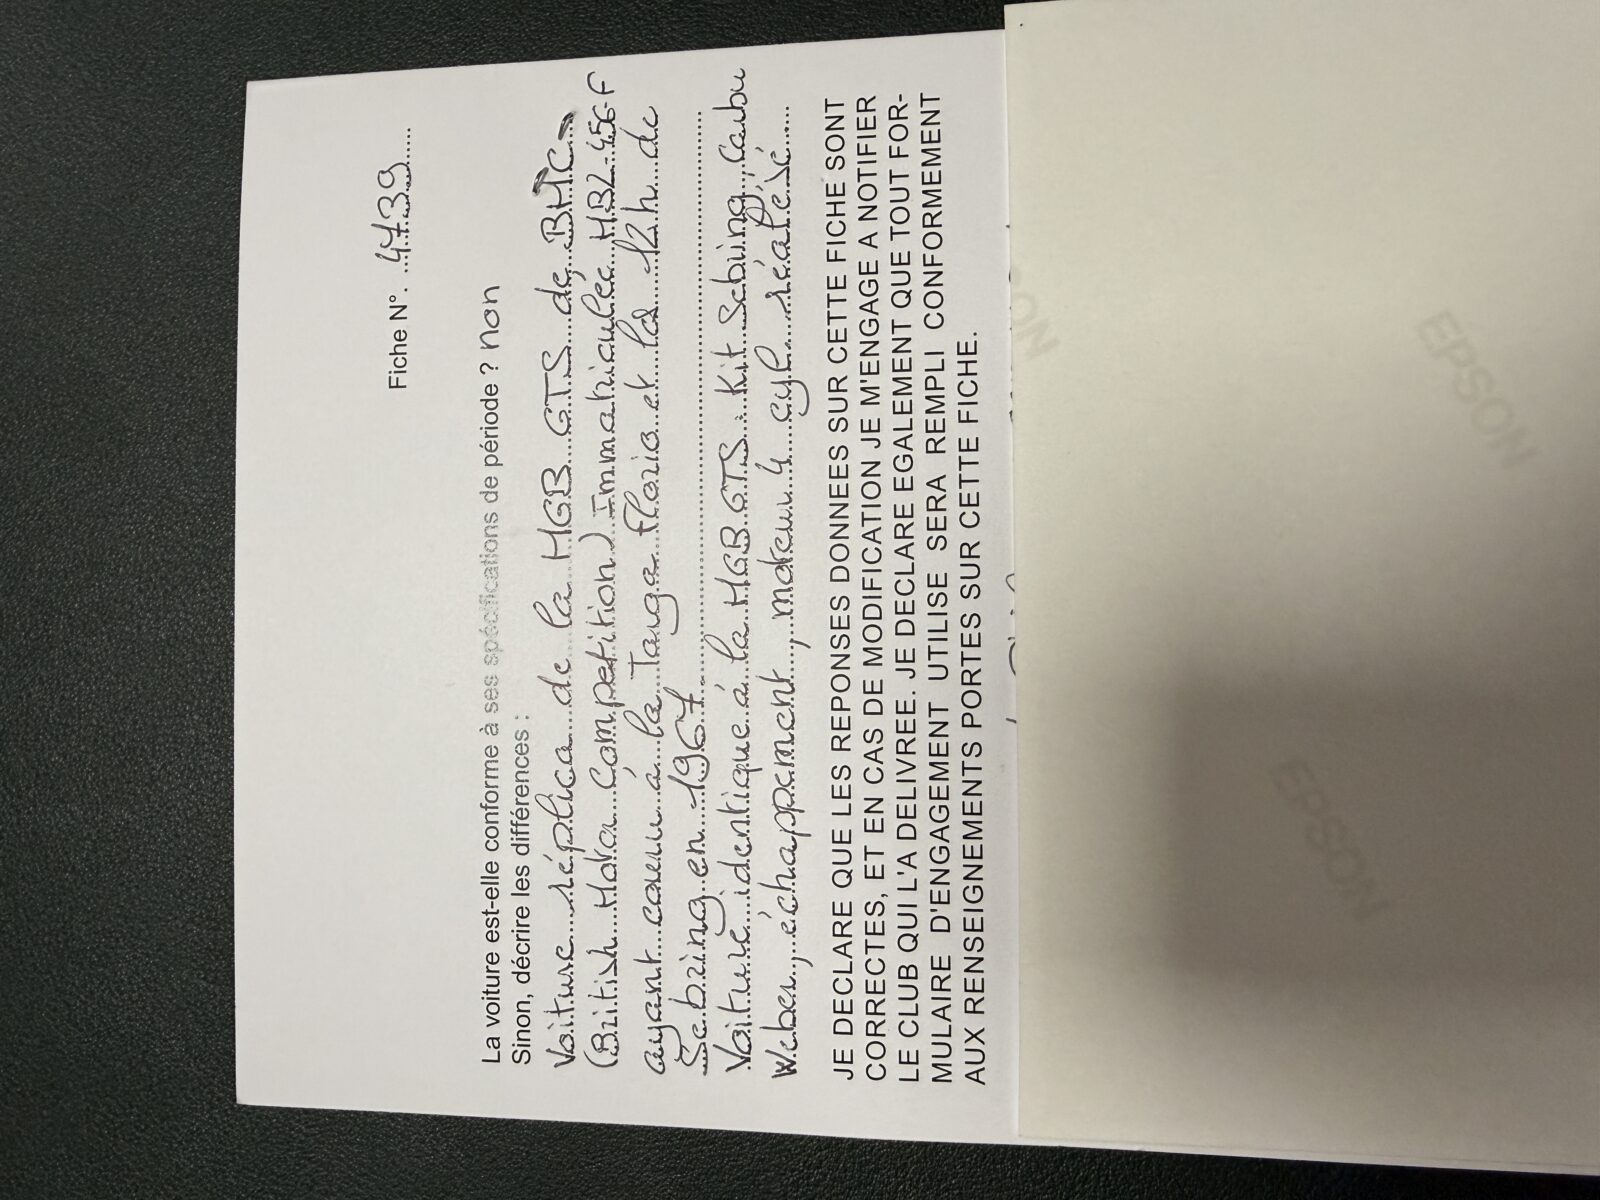 Fiche N°. 4739
La voiture est-elle conforme à ses spécifications de période ? non
Sinon, décrire les différences :
Voiture réplica de la MGB GTS de BMC
(British Motor Competition) Immatriculée HBL-456-F
ayant couru à la Targa Florio et la 12h de
Sebring en 1967
Voiture identique à la MGB GTS : Kit Sebring, Carbu
Weber, échappement, moteur 4 cyl. réalésé
JE DECLARE QUE LES REPONSES DONNEES SUR CETTE FICHE SONT
CORRECTES, ET EN CAS DE MODIFICATION JE M'ENGAGE A NOTIFIER
LE CLUB QUI L'A DELIVREE. JE DECLARE EGALEMENT QUE TOUT FOR-
MULAIRE D'ENGAGEMENT UTILISE SERA REMPLI CONFORMEMENT
AUX RENSEIGNEMENTS PORTES SUR CETTE FICHE.
EPSON
EPSON